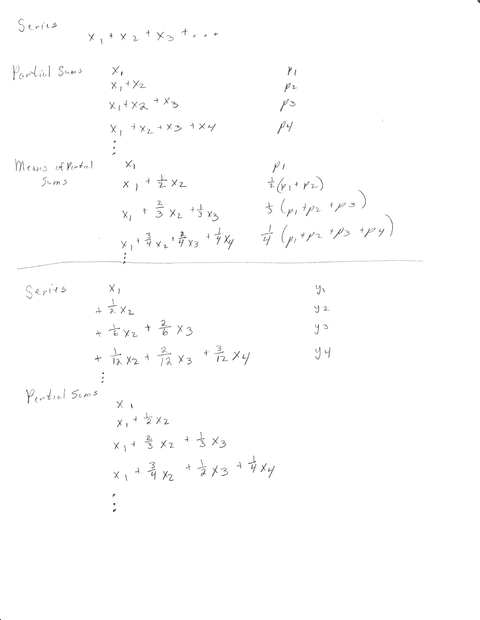 Series
x₁ + x₂ + x₃ + ...
Partial Sums x₁ p₁
x₁ + x₂ p₂
x₁ + x₂ + x₃ p₃
x₁ + x₂ + x₃ + x₄ p₄
⋮
Means of Partial Sums x₁ p₁
x₁ + 1/2 x₂ 1/2 (p₁ + p₂)
x₁ + 2/3 x₂ + 1/3 x₃ 1/3 (p₁ + p₂ + p₃)
x₁ + 3/4 x₂ + 2/4 x₃ + 1/4 x₄ 1/4 (p₁ + p₂ + p₃ + p₄)
⋮
Series x₁ y₁
+ 1/2 x₂ y₂
+ 1/6 x₂ + 2/6 x₃ y₃
+ 1/12 x₂ + 2/12 x₃ + 3/12 x₄ y₄
⋮
Partial Sums
x₁
x₁ + 1/2 x₂
x₁ + 2/3 x₂ + 1/3 x₃
x₁ + 3/4 x₂ + 1/2 x₃ + 1/4 x₄
⋮